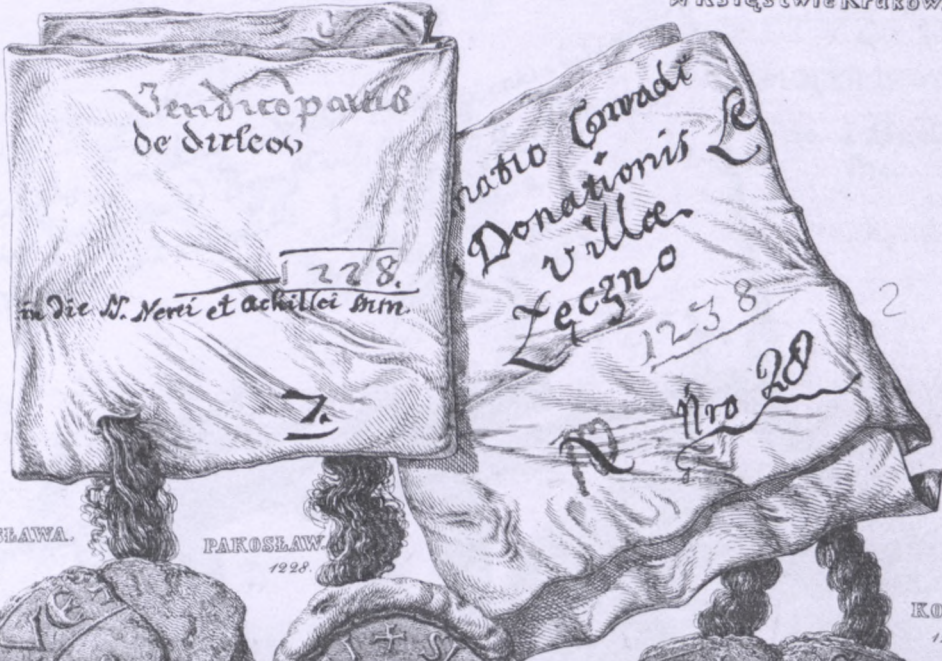 w Księstwie Krakow
Venditio partis
de dirscov
1228.
in die SS. Nerei et Achillei
7.
natio Conradi
Donationis
villæ
Łęczno
1238
Nro 28
2
SŁAWA.
PAKOSŁAW
1228.
KO